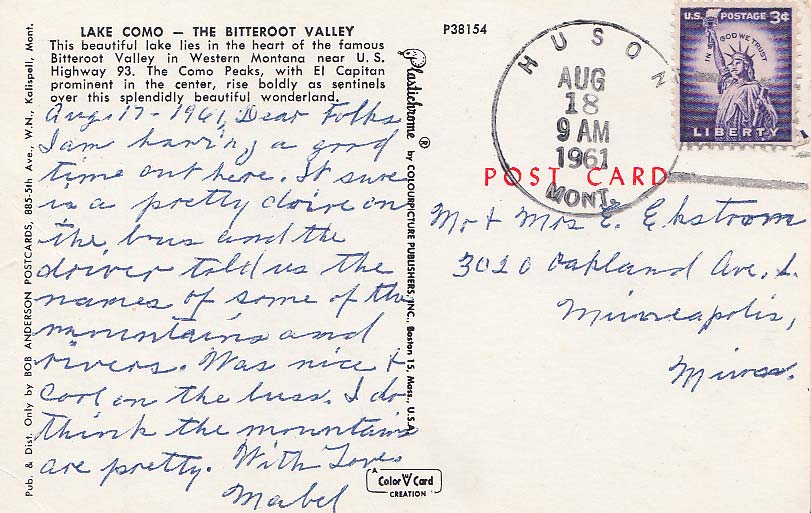 LAKE COMO — THE BITTEROOT VALLEY
This beautiful lake lies in the heart of the famous
Bitteroot Valley in Western Montana near U. S.
Highway 93. The Como Peaks, with El Capitan
prominent in the center, rise boldly as sentinels
over this splendidly beautiful wonderland.
Aug. 17-1961, Dear Folks
I am having a good
time out here. It sure
is a pretty drive on
the bus and the
driver told us the
names of some of the
mountains and
rivers. Was nice &
cool on the buss. I do
think the mountains
are pretty. With Love
Mabel
Pub. & Dist. Only by BOB ANDERSON POSTCARDS, 885-5th Ave., W.N., Kalispell, Mont.
Plastichrome ® by COLOURPICTURE PUBLISHERS, INC., Boston 15, Mass., U.S.A.
P38154
HUSON
AUG
18
9 AM
1961
MONT.
U.S. POSTAGE 3¢
IN GOD WE TRUST
LIBERTY
POST CARD
Mr & Mrs E. Ekstrom
3020 Oakland Ave. S.
Minneapolis,
Minn.
A
Color Card
CREATION